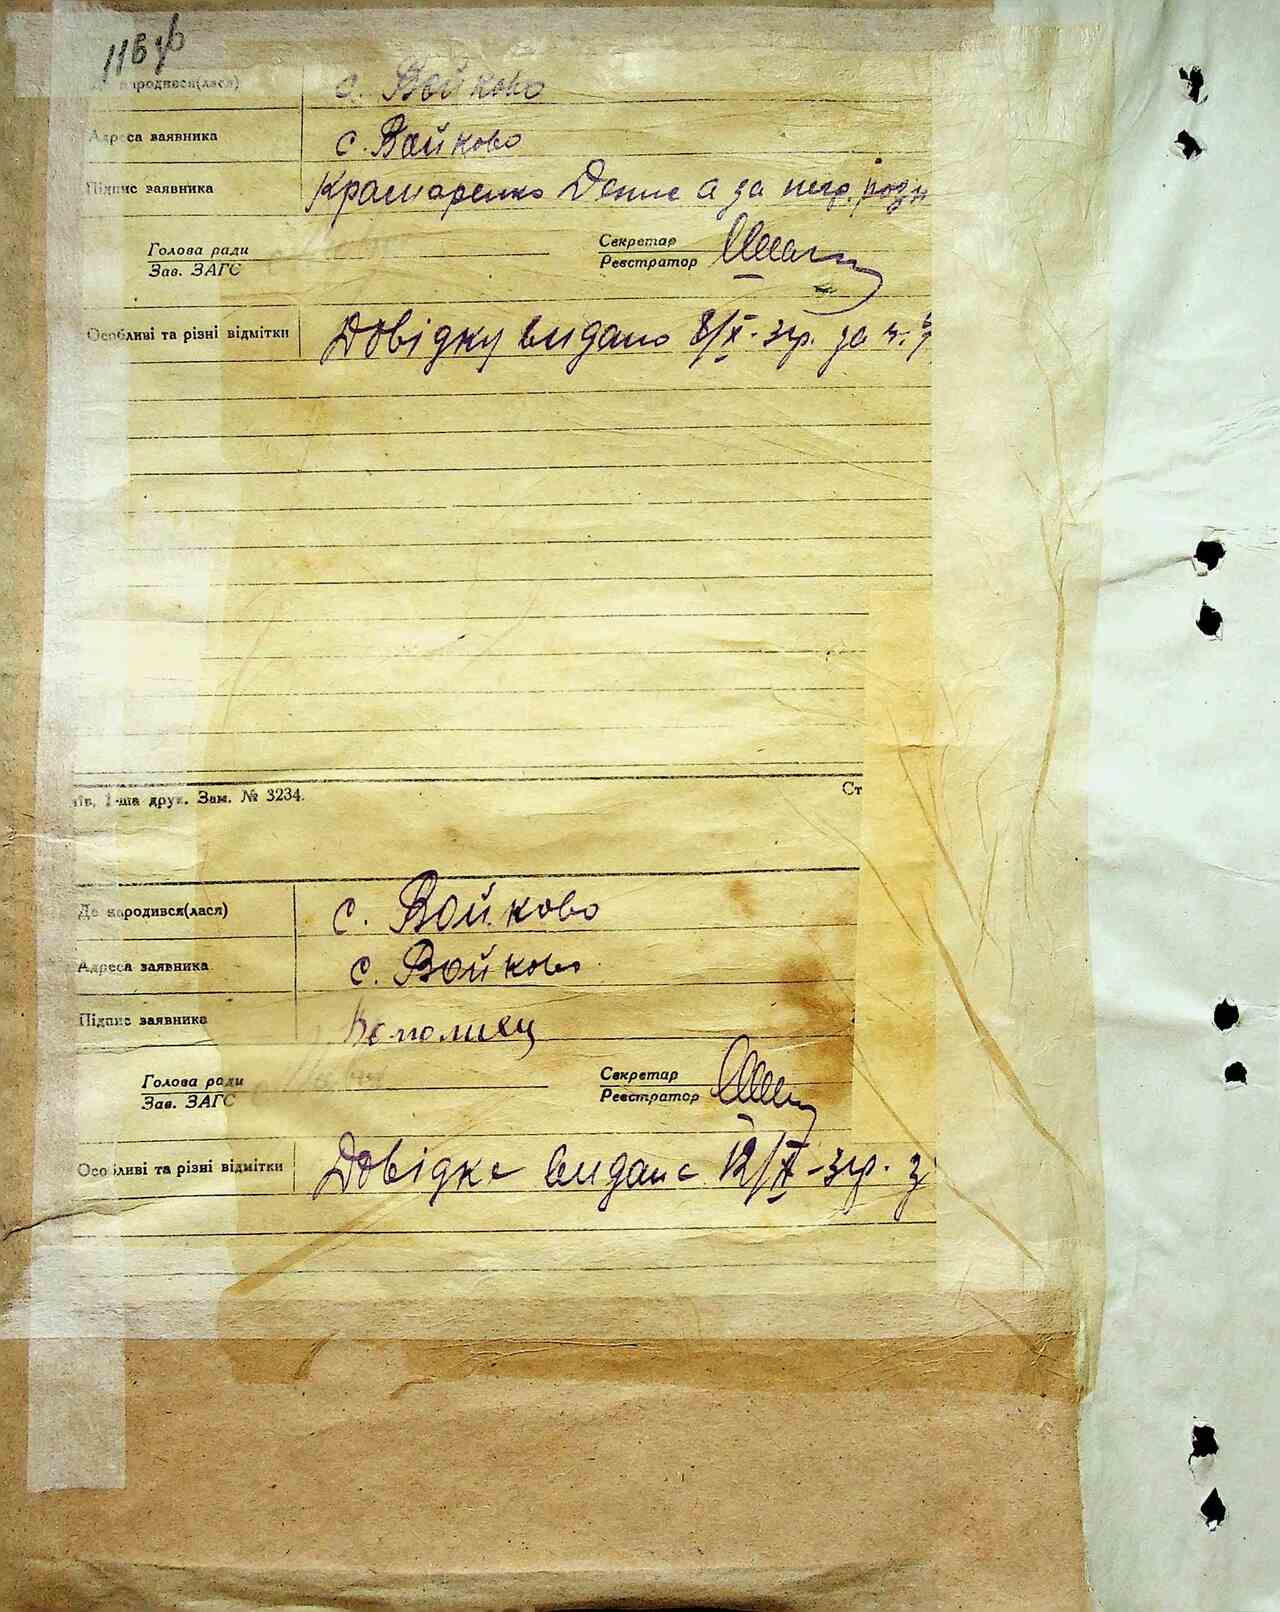 Де народився(лася) с. Войково
Адреса заявника с. Войково
Підпис заявника Крамаренко Денис а за
Голова ради Секретар
Зав. ЗАГС Реєстратор
Особливі та різні відмітки Довідку видано 8/X-3 р. за
1-ша друк. Зам. № 3234. Ст
Де народився(лася) с. Войково
Адреса заявника с. Войково
Підпис заявника
Голова ради Секретар
Зав. ЗАГС Реєстратор
Особливі та різні відмітки Довідке видане 12/X-3 р. з